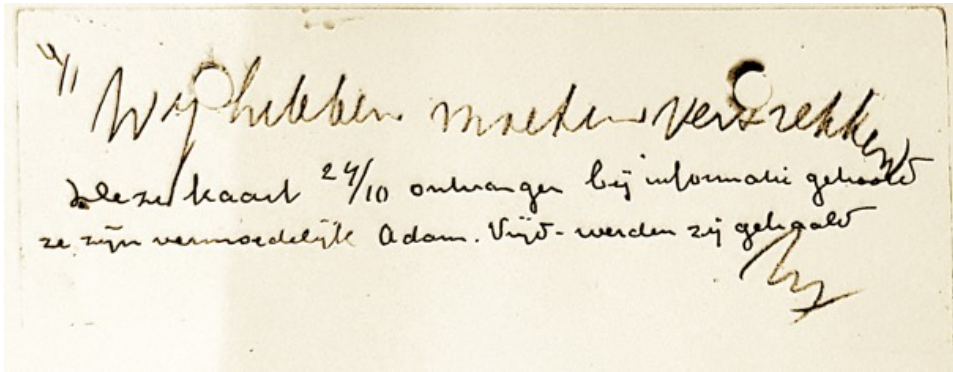 Wij hebben moeten vertrekken
deze kaart 24/10 ontvangen bij informatie gehoord
ze zijn vermoedelijk Adam. Vrijd- werden zij gehaald